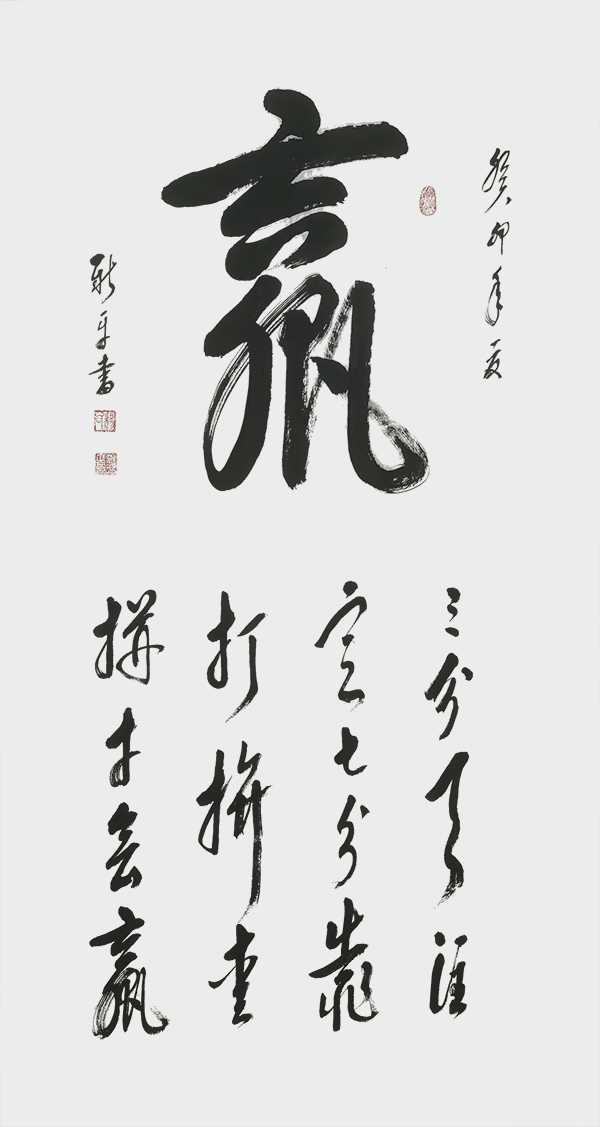 赢
癸卯年夏
三分天注
定七分靠
打拼爱
拼才会赢
新平書